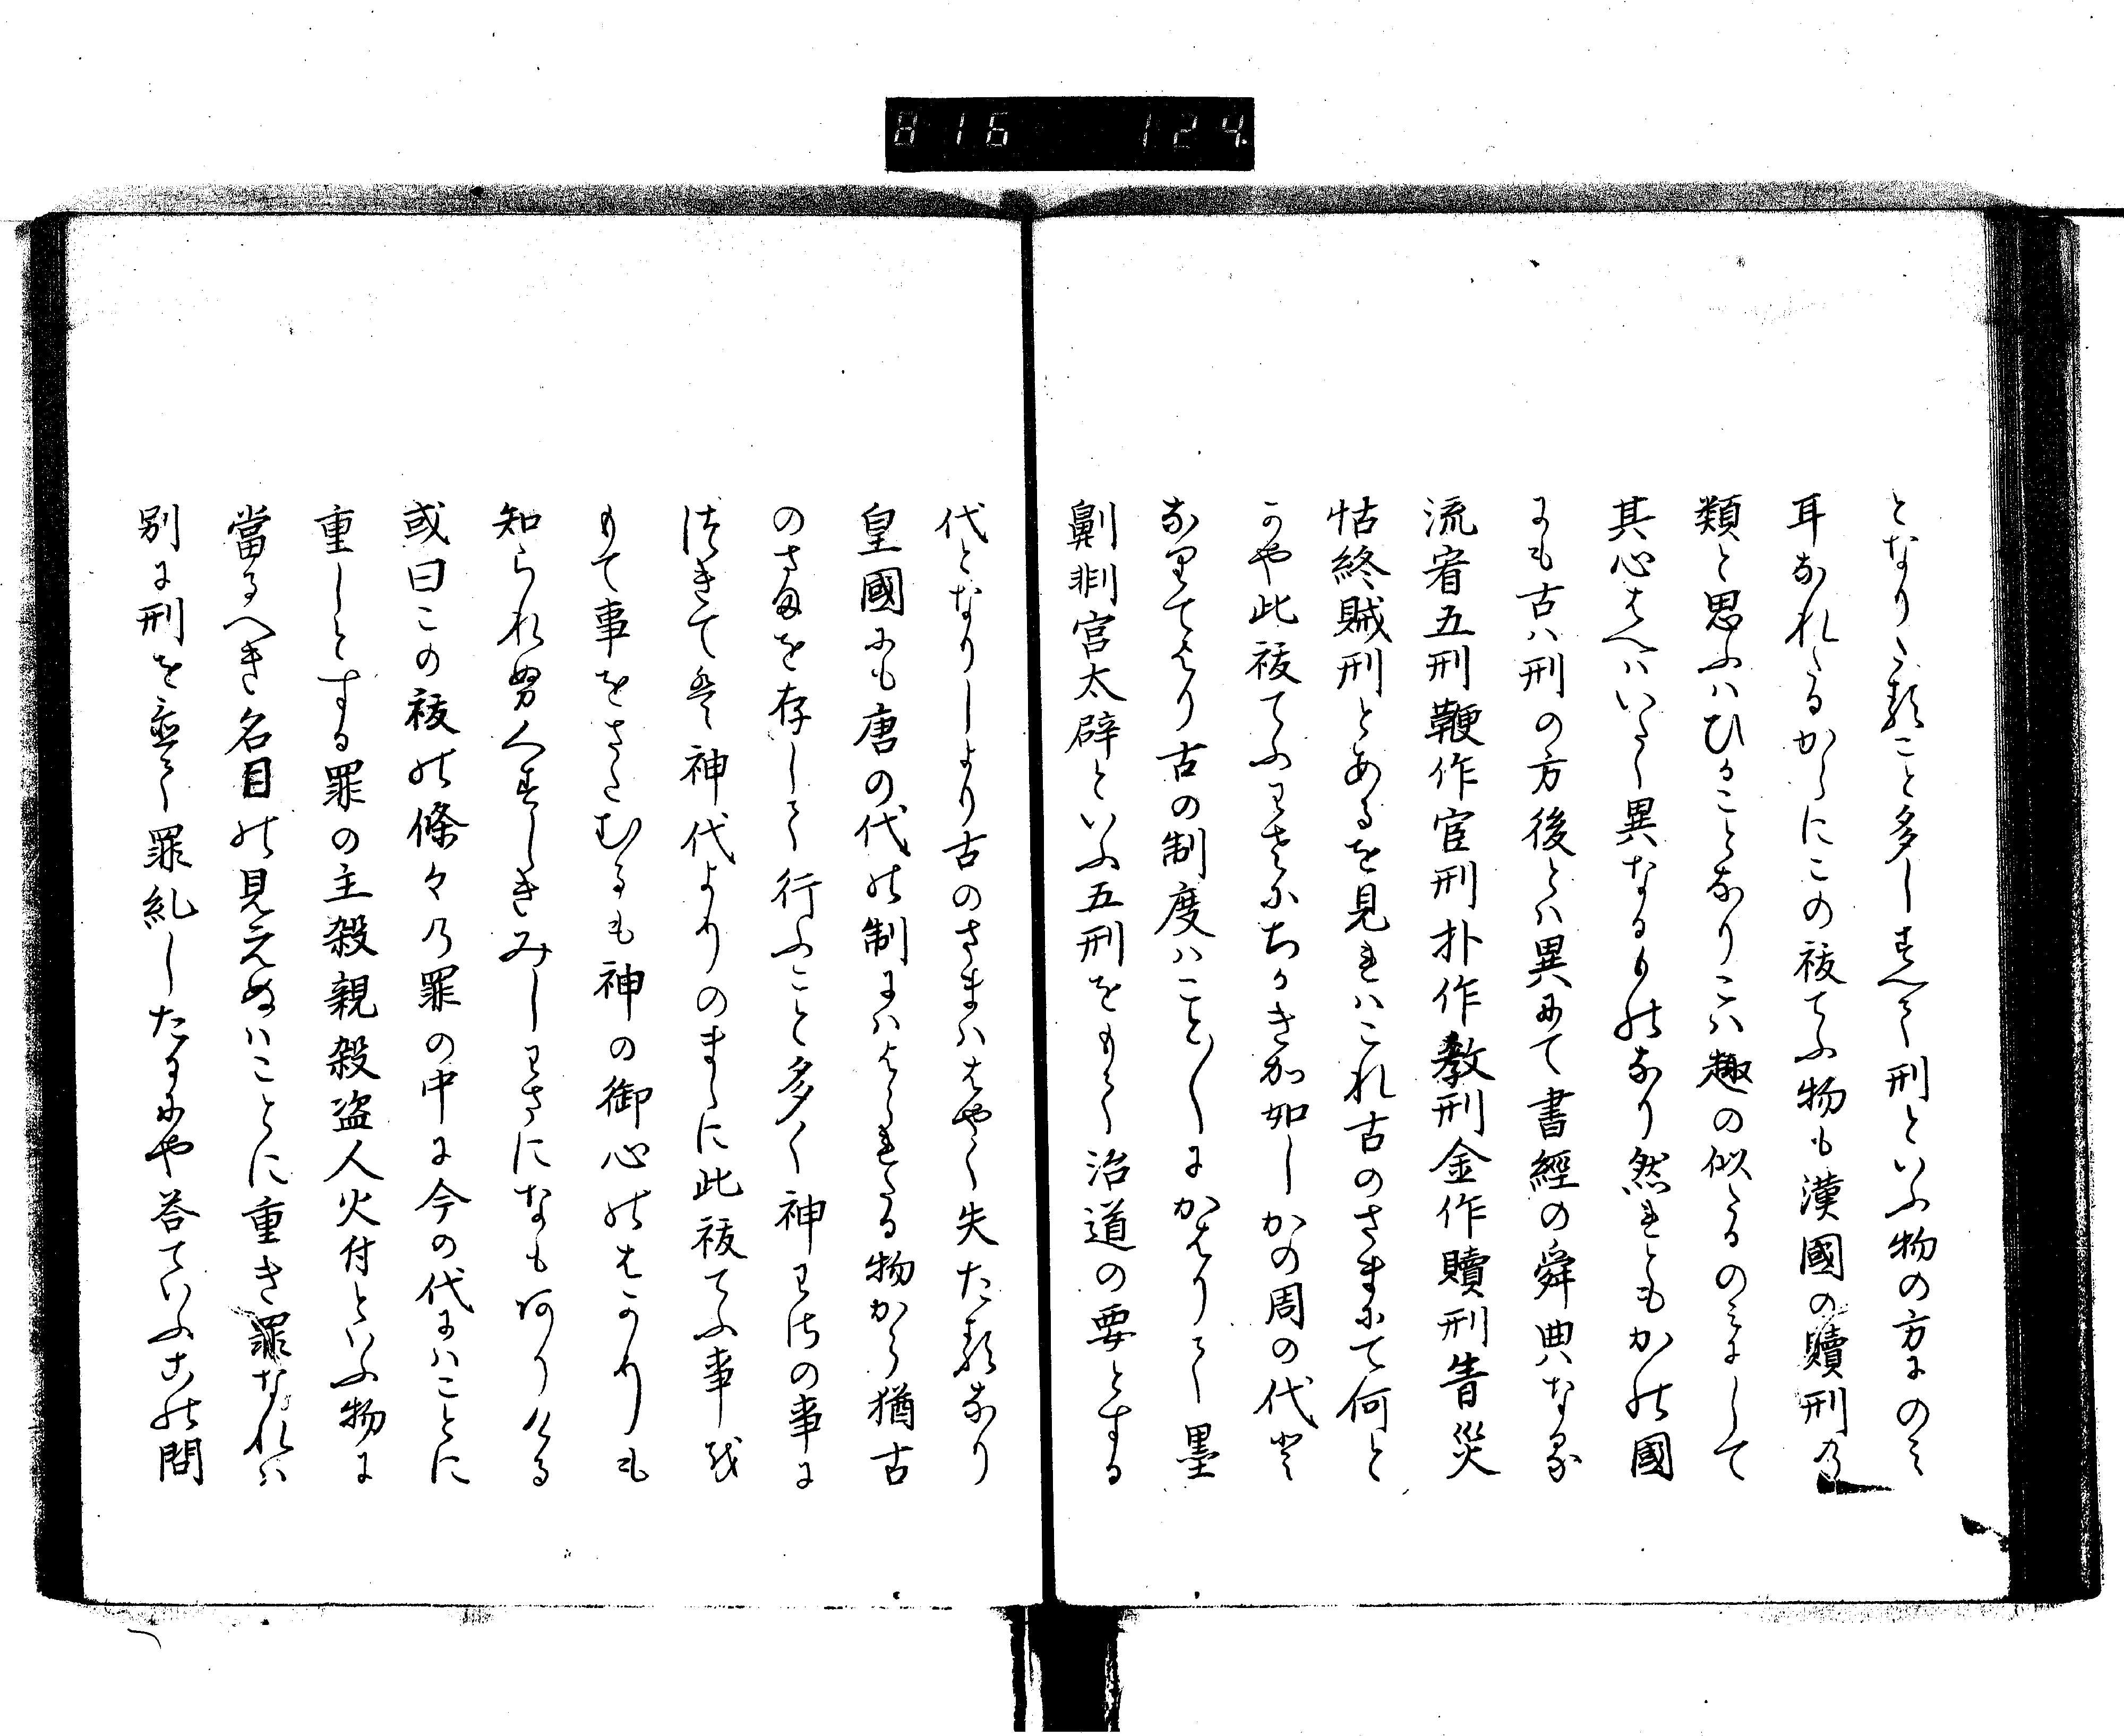 816 124
となりたること多しすへて刑といふ物の方にのミ
耳なれたるからにこの祓てふ物も漢國の贖刑乃
類と思ふハひかことなりこハ趣の似たるのミにして
其心はへハいたく異なるもの也なり然れともかの國
にも古ハ刑の方後とハ異にて書經の舜典になる
流宥五刑鞭作官刑扑作教刑金作贖刑眚災
怙終賊刑とあるを見れハこれ古のさまにて何と
かや此祓てふわさにちかき加如しかの周の代と
なりてより古の制度ハこと〱にかはりて墨
劓剕宮大辟といふ五刑をもて治道の要とする
代となりしより古のさまハはやく失たるなり
皇國にも唐の代の制にハよられたる物から猶古
のさまを存して行ふこと多く神わさの事に
つきては神代よりのまゝに此祓てふ事を
もて事をさたむるも神の御心のはかりも
知られ努〻すましきみしわさになもありける
或曰この祓の條々乃罪の中に今の代にハことに
重しとする罪の主殺親殺盗人火付といふ物に
當るへき名目の見えぬハことに重き罪なれハ
別に刑を立て罪糺したるにや答ていふこの問